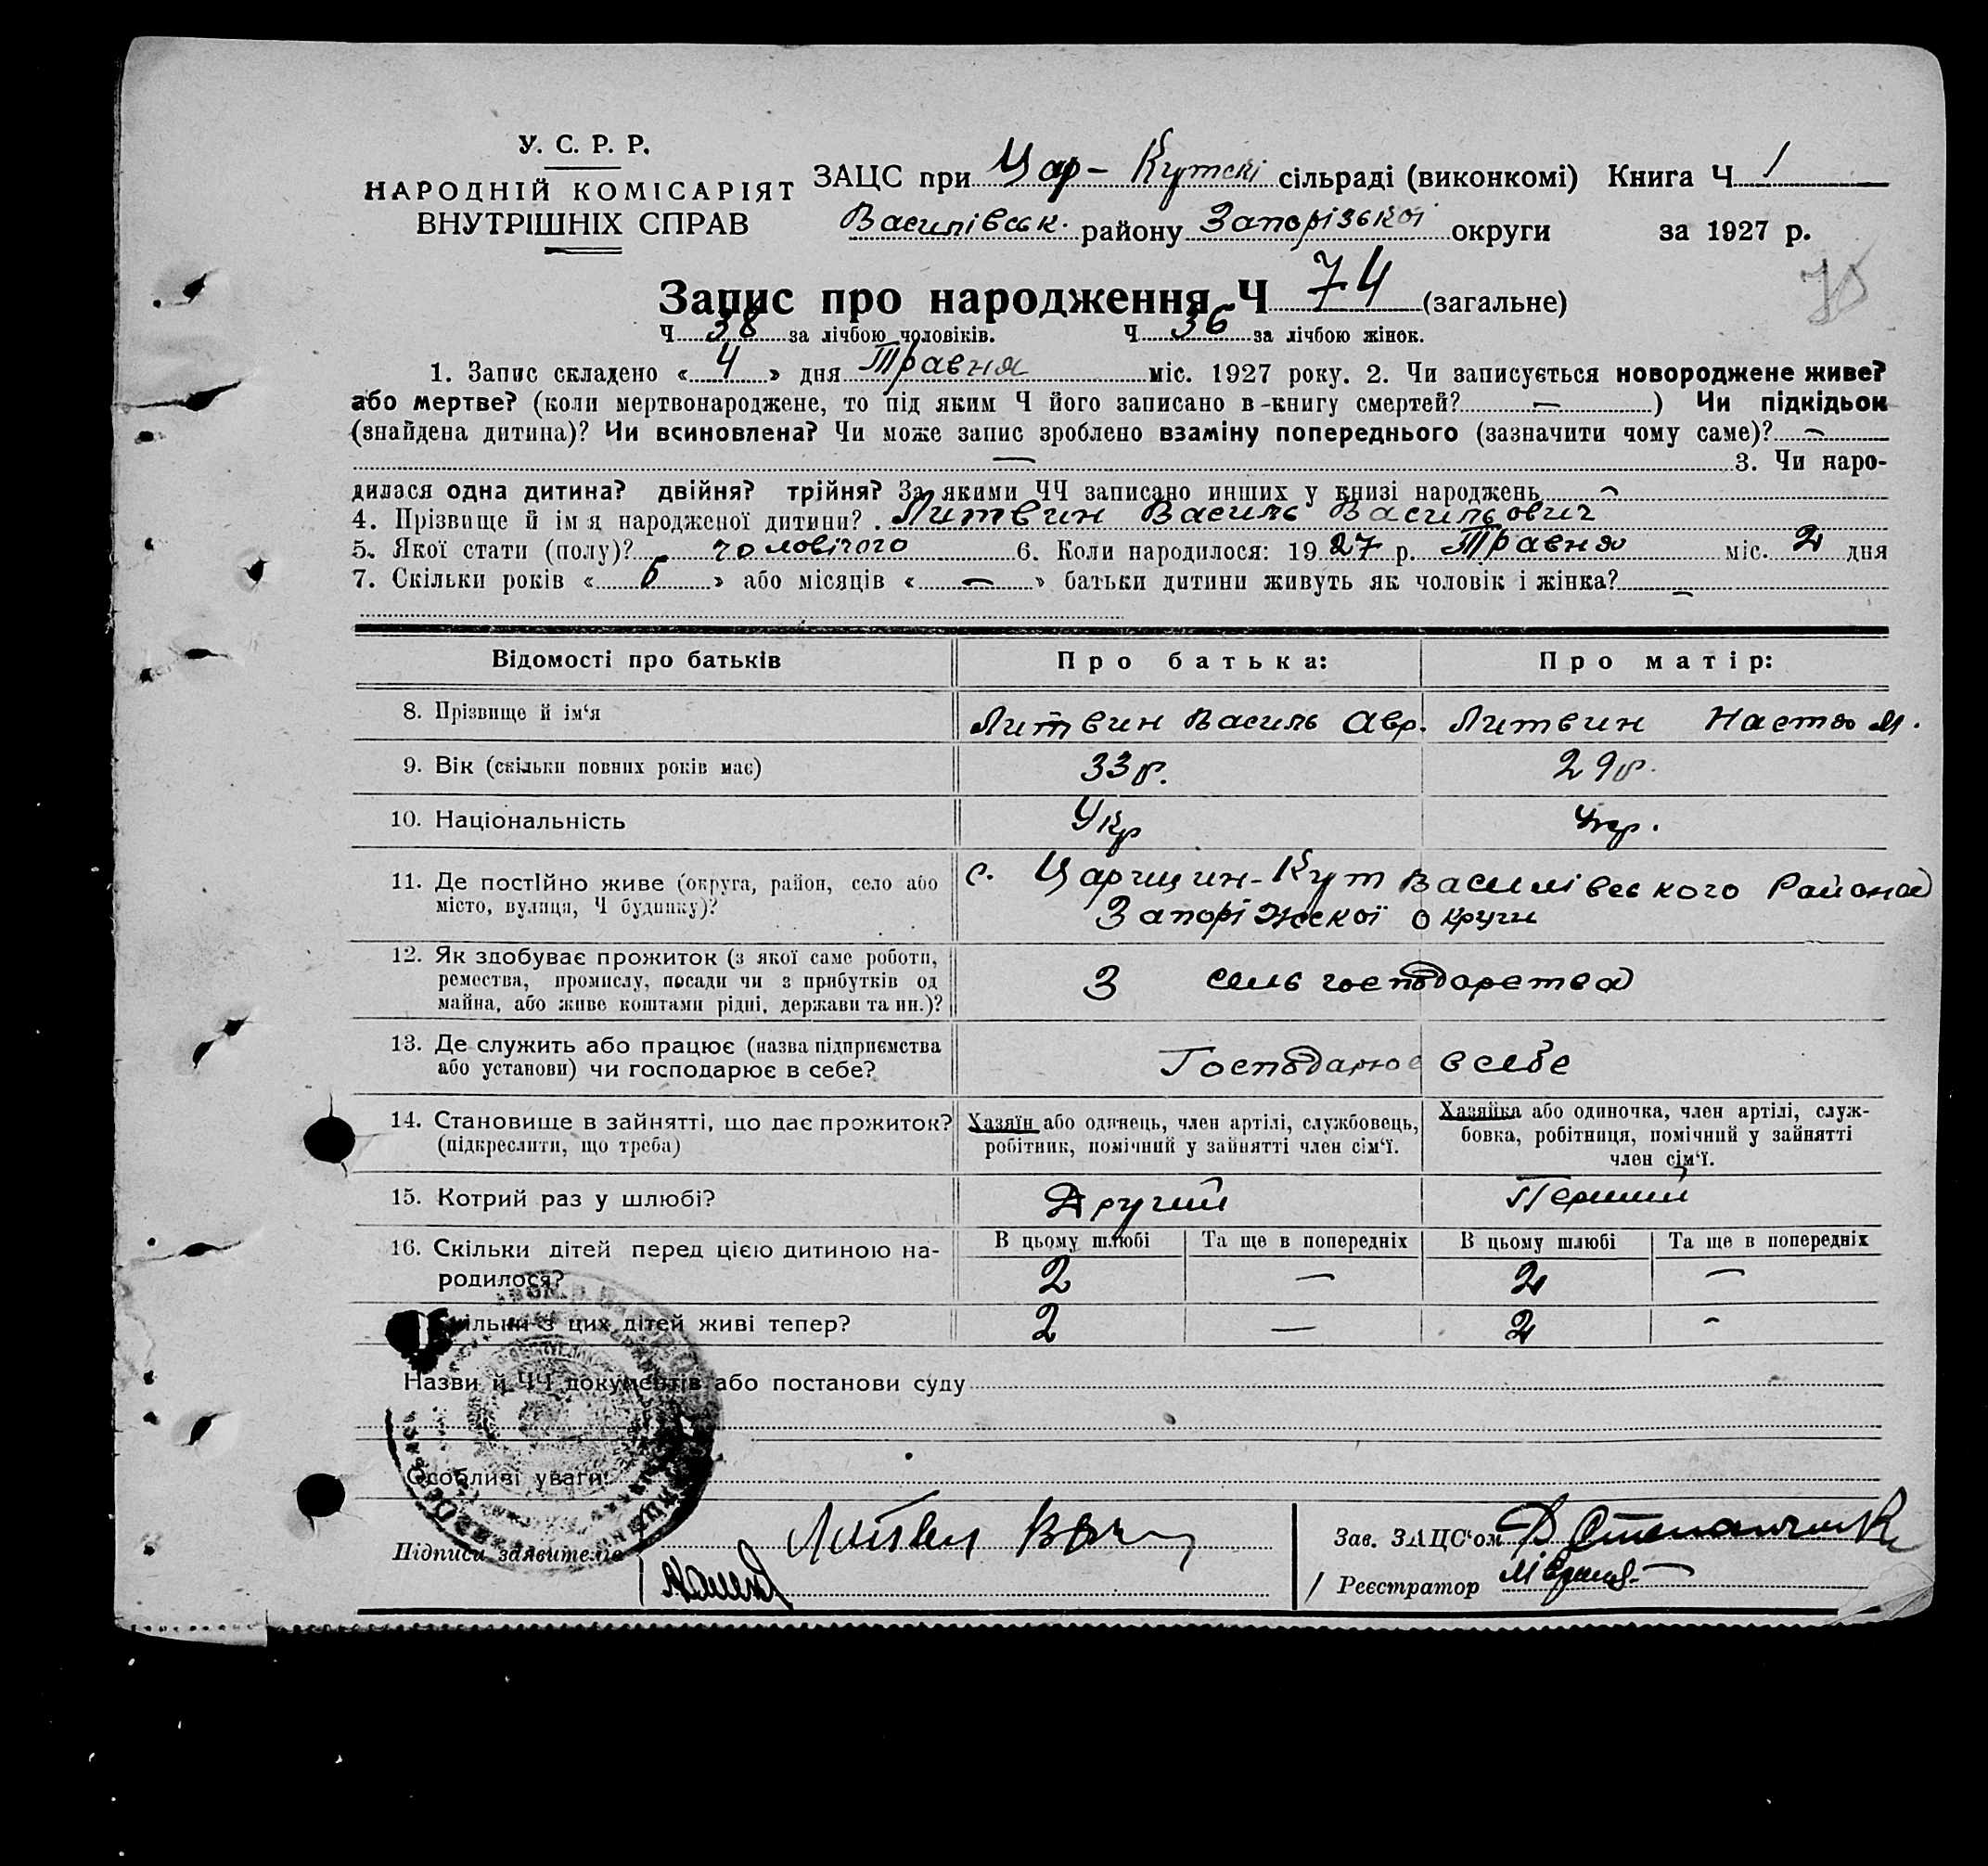 У. С. Р. Р.
НАРОДНІЙ КОМІСАРІЯТ
ВНУТРІШНІХ СПРАВ
ЗАЦС при Цар-Кутскі сільраді (виконкомі) Книга Ч 1
Василівськ. району Запорізької округи за 1927 р.
Запис про народження Ч 74 (загальне)
Ч 38 за лічбою чоловіків. Ч 36 за лічбою жінок.
1. Запис складено « 4 » дня Травня міс. 1927 року. 2. Чи записується новороджене живе?
або мертве? (коли мертвонароджене, то під яким Ч його записано в книгу смертей? — ) Чи підкідьок
(знайдена дитина)? Чи всиновлена? Чи може запис зроблено взаміну попереднього (зазначити чому саме)? —
— 3. Чи наро-
дилася одна дитина? двійня? трійня? За якими ЧЧ записано инших у книзі народжень —
4. Прізвище й ім'я народженої дитини? Литвин Василь Васильович
5. Якої стати (полу)? чоловічого 6. Коли народилося: 1927 р. Травня міс. 2 дня
7. Скільки років « 6 » або місяців « — » батьки дитини живуть як чоловік і жінка? —
Відомості про батьків Про батька: Про матір:
8. Прізвище й ім'я Литвин Василь Авр. Литвин Настя М.
9. Вік (скільки повних років має) 33 р. 29 р.
10. Національність Укр Укр.
11. Де постійно живе (округа, район, село або
місто, вулиця, Ч будинку)?
с. Царицин-Кут Василівського Района
Запоріжської округи
12. Як здобуває прожиток (з якої саме роботи,
ремества, промислу, посади чи з прибутків од
майна, або живе коштами рідні, держави та ин.)?
З сель господарства
13. Де служить або працює (назва підприємства
або установи) чи господарює в себе?
Господарює в себе
14. Становище в зайнятті, що дає прожиток?
(підкреслити, що треба)
Хазяїн або одинець, член артілі, службовець,
робітник, помічний у зайнятті член сім'ї.
Хазяйка або одиночка, член артілі, служ-
бовка, робітниця, помічний у зайнятті
член сім'ї.
15. Котрий раз у шлюбі? Другий Перший
16. Скільки дітей перед цією дитиною на-
родилося?
В цьому шлюбі Та ще в попередніх В цьому шлюбі Та ще в попередніх
2 — 2 —
Скільки з цих дітей живі тепер? 2 — 2 -
Назви й ЧЧ документів або постанови суду
Особливі уваги:
Підписи заявителів Литвин
Зав. ЗАЦС'ом Степанчук
Реєстратор